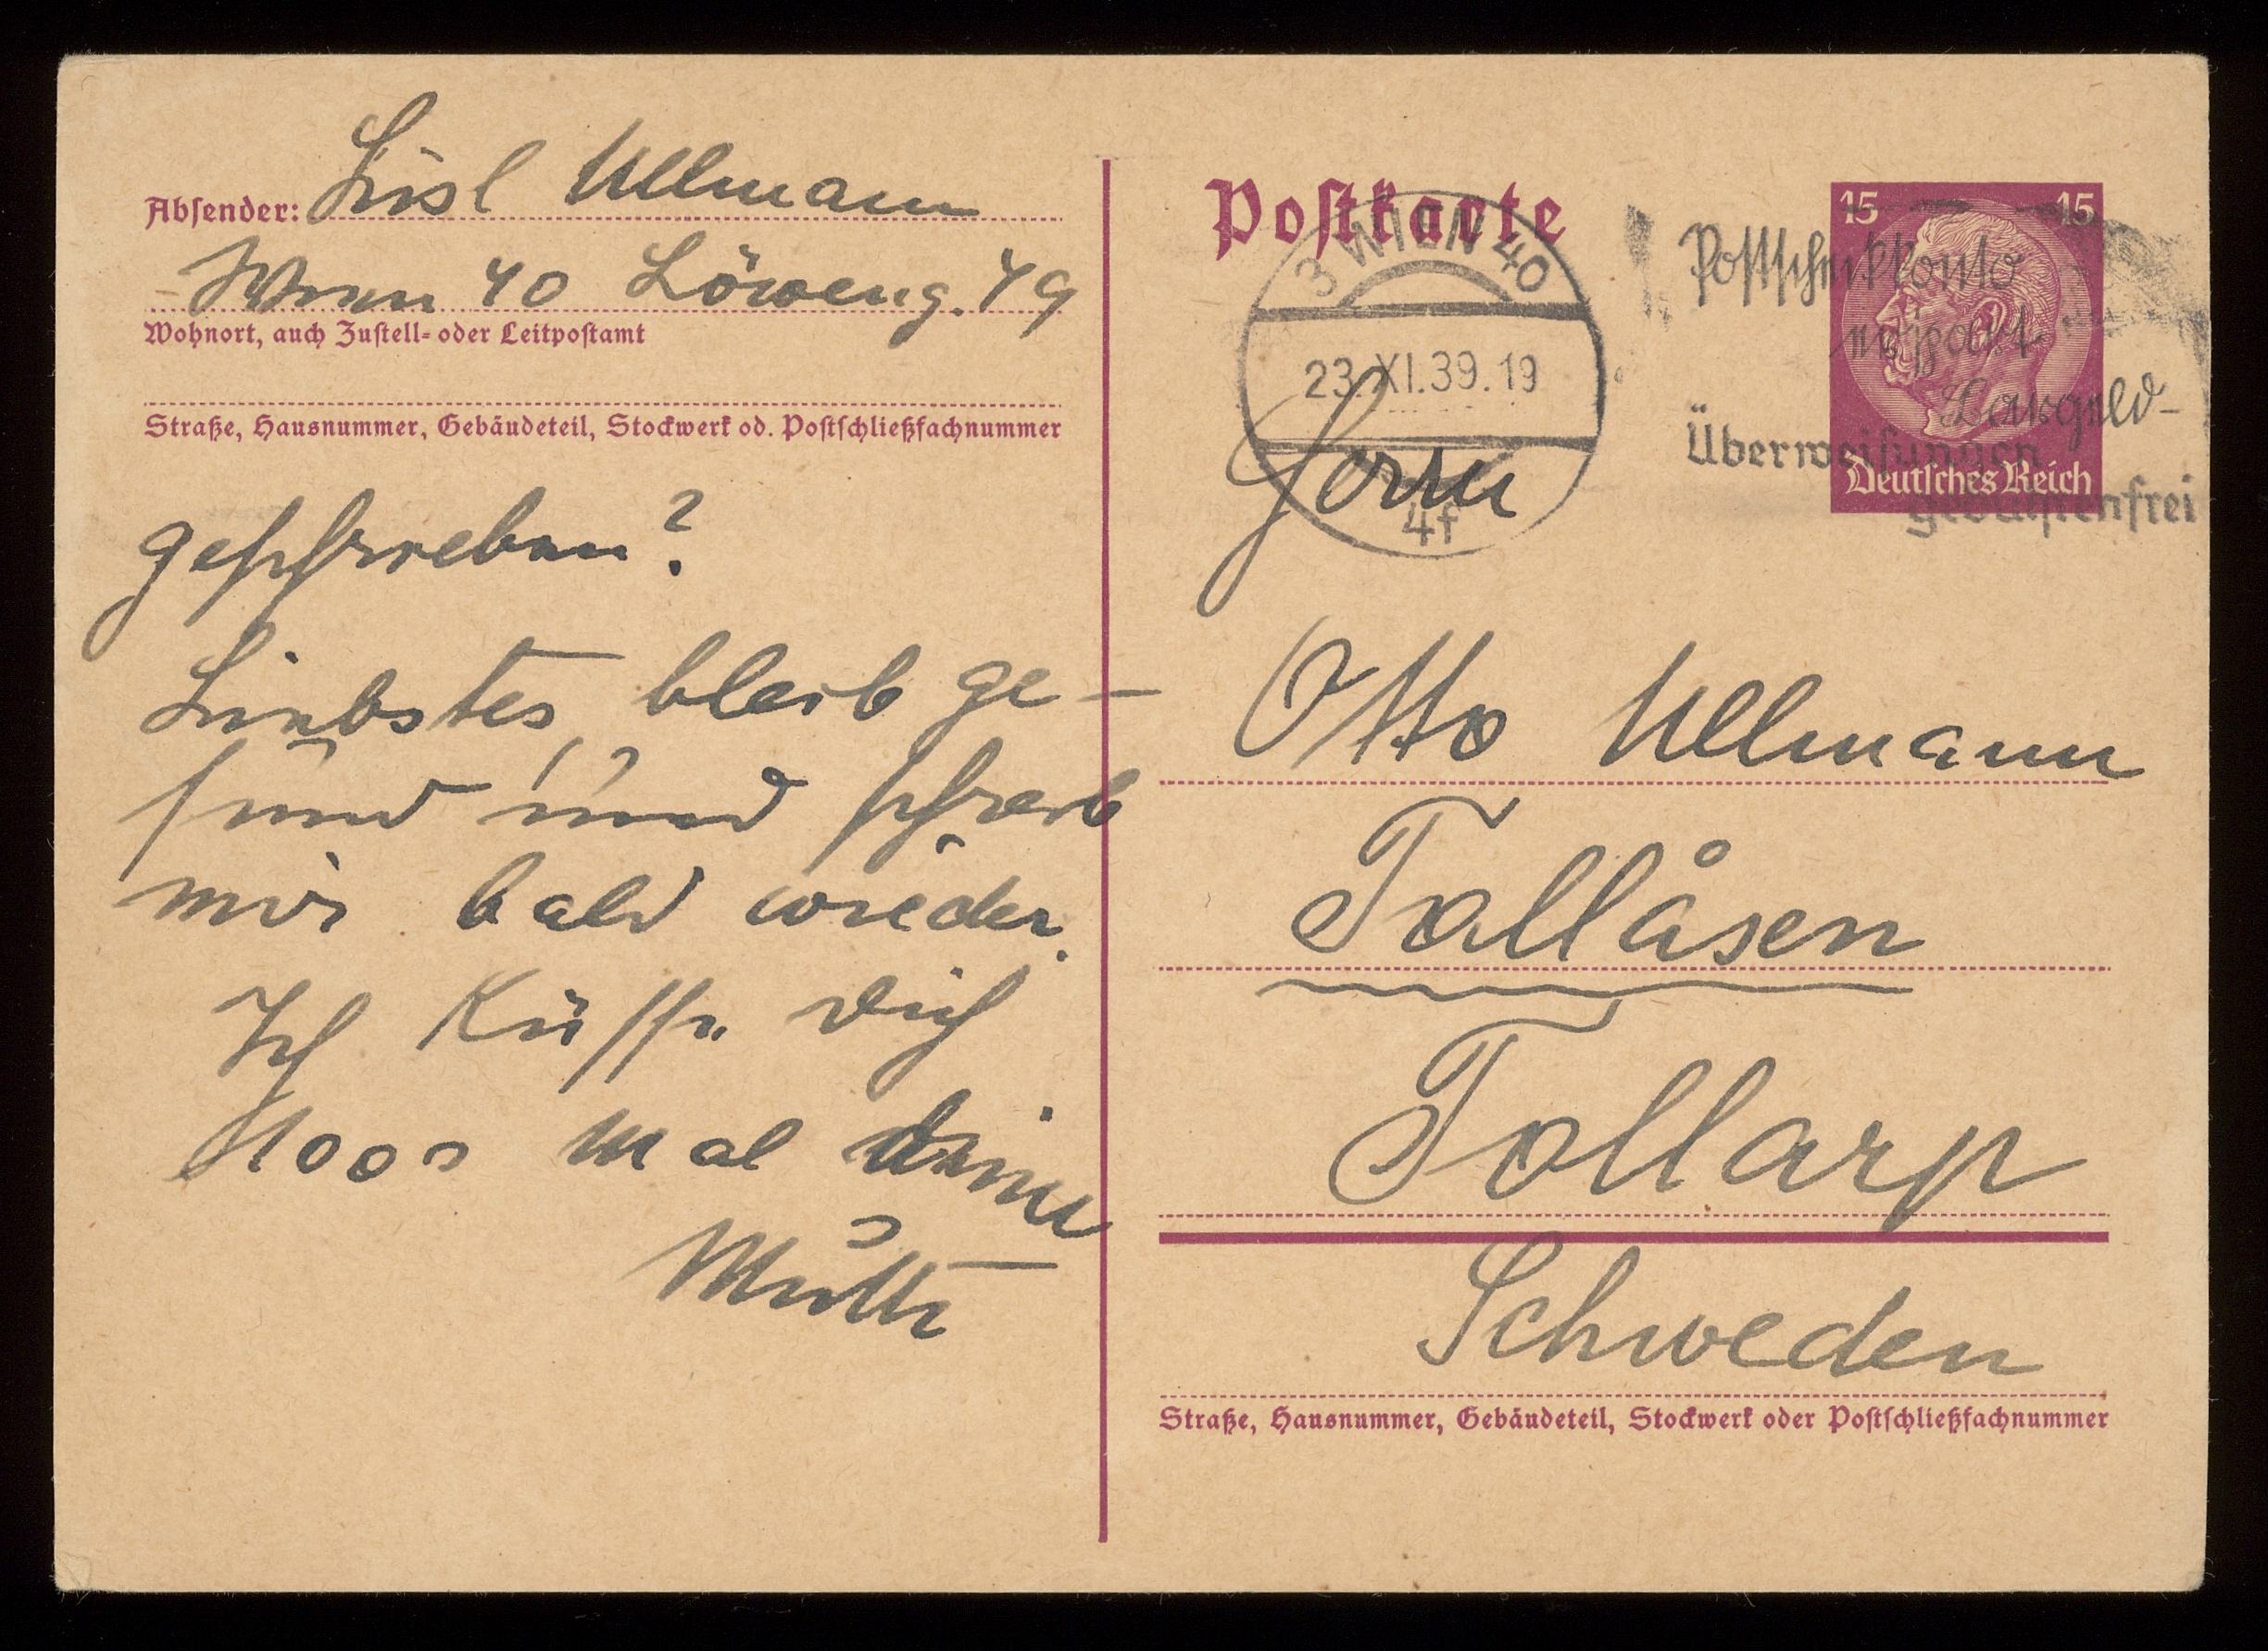 Absender: Lisl Ullmann
Wien 40 Löweng. 49
Wohnort, auch Zustell- oder Leitpostamt
Straße, Hausnummer, Gebäudeteil, Stockwerk od. Postschließfachnummer
geschrieben?
Liebstes, bleib ge-
sund und schreib
mir bald wieder.
Ich küsse dich
1000 mal deine
Mutti
Postkarte
3 WIEN 40
23.XI.39.19
4f
Postscheckkonto
erspart
Bargeld-
Überweisungen
gebührenfrei
15 15
Deutsches Reich
Herrn
Otto Ullmann
Tallåsen
Tollarp
Schweden
Straße, Hausnummer, Gebäudeteil, Stockwerk oder Postschließfachnummer